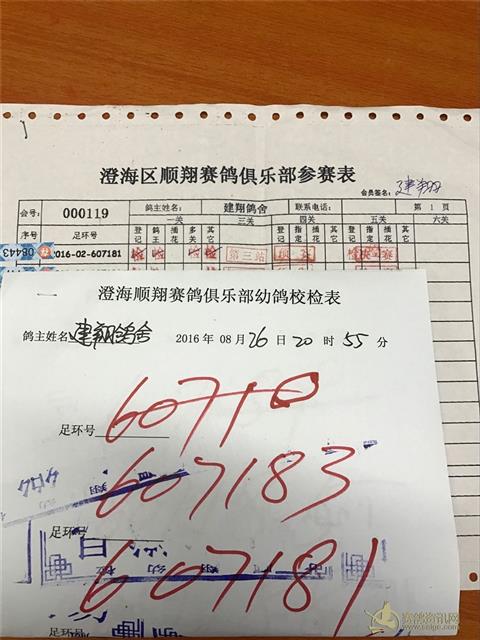 澄海区顺翔赛鸽俱乐部参赛表
会员签名: 建翔
会号: 000119 鸽主姓名: 建翔鸽舍 联系电话: 第 1 页
一关 三关 四关 五关 六关
序号 足环号 登记 鸽主 插花 多关 其它 登记 指定 插花 其它 登记 指定 插花 其它
08443 016-02-607181 第三站
澄海顺翔赛鸽俱乐部幼鸽校检表
鸽主姓名 建翔鸽舍 2016 年 08 月 26 日 20 时 55 分
足环号 60710
607183
足环号
607181
足环号
赛鸽资讯网
www.saige.com